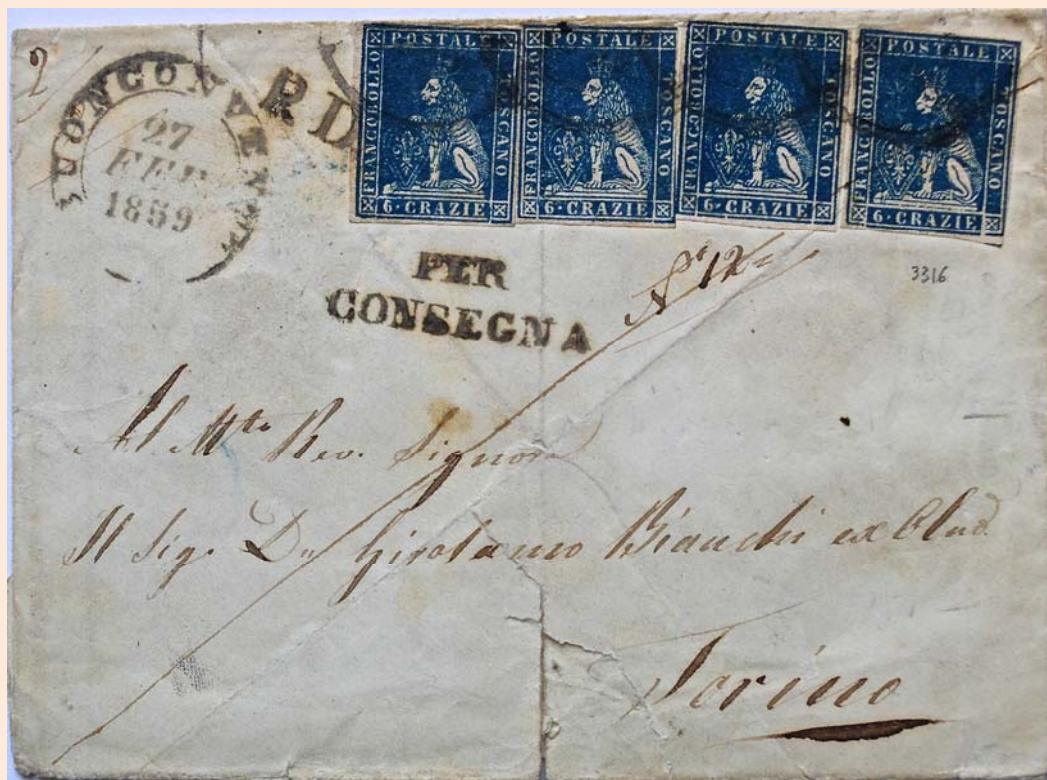 2
BUONCONVENTO
27
FEB
1859
P D
POSTALE
FRANCOBOLLO
TOSCANO
6 · CRAZIE
POSTALE
FRANCOBOLLO
TOSCANO
6 · CRAZIE
POSTALE
FRANCOBOLLO
TOSCANO
6 · CRAZIE
POSTALE
FRANCOBOLLO
TOSCANO
6 · CRAZIE
PER
CONSEGNA
N° 12
3316
Al Mto Rev. Signore
Il Sig. Dn Girolamo Bianchi ex
Torino